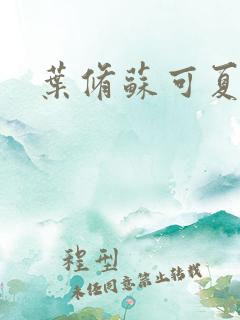 葉脩蘇可夏
程型
未經同意禁止转载